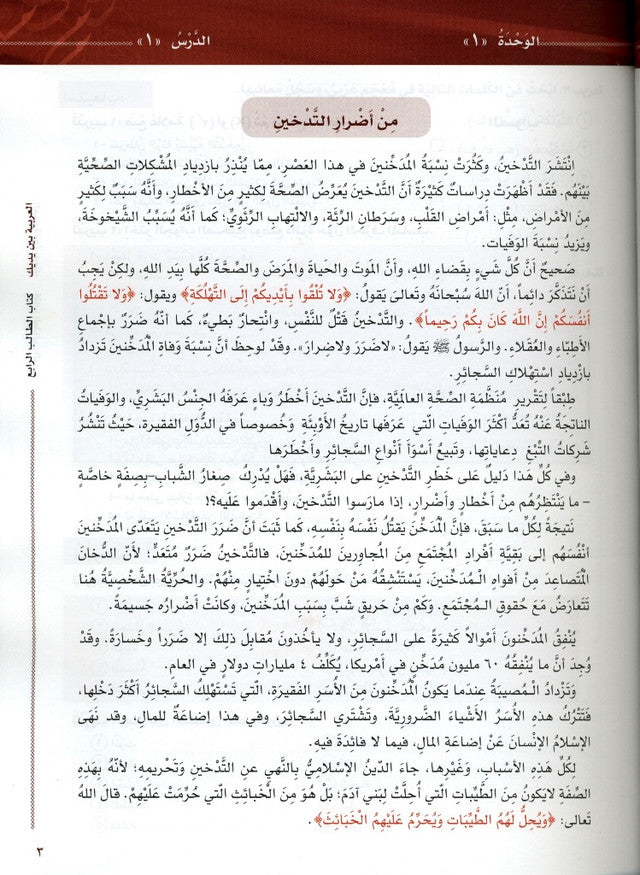 الوَحْدَةُ «١»
الدَّرْسُ «١»
مِنْ أَضْرارِ التَّدْخينِ
انْتَشَرَ التَّدْخينُ، وكَثُرَتْ نِسْبَةُ المُدَخِّنينَ في هذا العَصْرِ، مِمّا يُنْذِرُ بازدِيادِ المُشْكِلاتِ الصِّحِّيَّةِ
بَيْنَهُم. فَقَدْ أَظْهَرَتْ دِراساتٌ كَثيرَةٌ أَنَّ التَّدْخينَ يُعَرِّضُ الصِّحَّةَ لِكَثيرٍ مِنَ الأخْطارِ، وأَنَّهُ سَبَبٌ لِكَثيرٍ
مِنَ الأمْراضِ، مِثْلُ: أَمْراضِ القَلْبِ، وسَرَطانِ الرِّئَةِ، والالْتِهابِ الرِّئَوِيِّ؛ كَما أَنَّهُ يُسَبِّبُ الشَّيْخوخَةَ،
ويَزيدُ نِسْبَةَ الوَفَياتِ.
صَحيحٌ أَنَّ كُلَّ شَيءٍ بِقَضاءِ اللهِ، وأَنَّ المَوتَ والحَياةَ والمَرَضَ والصِّحَّةَ كُلَّها بِيَدِ اللهِ، ولكِنْ يَجِبُ
أَنْ نَتَذَكَّرَ دائِماً، أَنَّ اللهَ سُبْحانَهُ وتَعالىَ يَقولُ: ﴿وَلا تُلْقُوا بِأَيْدِيكُمْ إِلَى التَّهْلُكَةِ﴾ ويقول: ﴿وَلا تَقْتُلُوا
أَنفُسَكُمْ إِنَّ اللَّهَ كَانَ بِكُمْ رَحِيماً﴾. والتَّدْخينُ قَتْلٌ لِلنَّفْسِ، وانْتِحارٌ بَطيءٌ، كَما أنّهُ ضَرَرٌ بإجْماعِ
الأطِبّاءِ والعُقَلاءِ. والرَّسولُ ﷺ يَقولُ: «لاضَرَرَ ولاضِرارَ». وقَدْ لوحِظَ أنَّ نِسْبَةَ وَفاةِ الْمُدَخِّنينَ تَزدادُ
بازْدِيادِ اسْتِهْلاكِ السَّجائِرِ.
طِبْقاً لِتَقْريرِ مُنَظَّمَةِ الصِّحَّةِ العالَمِيَّةِ، فإنَّ التَّدْخينَ أَخْطَرُ وَباءٍ عَرَفَهُ الجِنْسُ البَشَرِيُّ، والوَفَياتُ
الناتِجَةُ عَنْهُ تُعَدُّ أَكْثَرَ الوَفِياتِ الّتي عَرَفَها تاريخُ الأوْبِئَةِ وَخُصوصاً في الدُّوَلِ الفقيرة، حَيْثُ تَنْشُرُ
شَرِكاتُ التَّبْغِ دِعاياتِها، وتَبيعُ أَسْوَأَ أَنْواعِ السَّجائِرِ وأَخْطَرَها
وفي كُلِّ هَذا دَليلٌ عَلى خَطَرِ التَّدْخينِ على البَشَرِيَّةِ، فَهَلْ يُدْرِكُ صِغارُ الشَّبابِ–بِصِفَةٍ خاصَّةٍ
– ما يَنْتَظِرُهُم مِنْ أَخْطارٍ وأَضْرارٍ، إذا مارَسوا التَّدْخينَ، وأَقْدَموا عَلَيه؟!
نَتيجَةً لِكُلِّ ما سَبَقَ، فإنَّ الْمُدَخِّنَ يَقتُلُ نَفْسَهُ بِنَفْسِهِ، كَما ثَبَتَ أنَّ ضَرَرَ التَّدْخينِ يَتَعَدّى المُدَخِّنينَ
أنْفُسَهُم إلى بَقِيَّةِ أَفْرادِ المُجْتَمَعِ مِنَ المُجاوِرينَ للمُدَخِّنينَ، فالتَّدْخينُ ضَرَرٌ مُتَعَدٍّ؛ لأنَّ الدُّخانَ
الْمُتَصاعِدَ مِنْ أفواهِ الْـمُدَخِّنينَ، يَسْتَنْشِقُهُ مَنْ حَولَهُم دونَ اختِيارٍ مِنْهُمْ. والحُرِّيَّةُ الشَّخْصِيَّةُ هُنا
تَتَعارَضُ مَعَ حُقوقِ الـمُجْتَمَعِ. وَكَمْ مِنْ حَريقٍ شَبَّ بِسَبَبِ المُدَخِّنينَ، وكانَتْ أضْرارُهُ جَسيمَةً.
يُنْفِقُ المُدَخِّنونَ أمْوالاً كَثيرَةً على السَّجائِرِ، ولا يأخُذونَ مُقابِلَ ذلِكَ إلا ضَرَراً وخَسارَةً. وقَدْ
وُجِدَ أنَّ ما يُنْفِقُهُ ٦٠ مليون مُدَخِّنٍ في أمْريكا، يُكَلِّفُ ٤ مليارات دولار في العامِ.
وَتَزْدادُ الْـمُصيبَةُ عِندَما يَكونُ الْمُدَخِّنونَ مِنَ الأسَرِ الفَقيرَةِ، الّتي تَسْتَهْلِكُ السَّجائِرُ أكْثَرَ دَخْلِها،
فَتَتْرُكُ هذِهِ الأُسَرُ الأَشْياءَ الضَّرورِيَّةَ، وتَشْتَري السَّجائِرَ، وفي هذا إضاعَةٌ للمالِ، وقد نَهَى
الإسْلامُ الإنْسانَ عَنْ إضاعَةِ المالِ، فيما لا فائِدَةَ فيهِ.
لِكُلِّ هَذِهِ الأسْبابِ، وغَيْرِها، جاءَ الدّينُ الإسْلامِيُّ بالنَّهيِ عنِ التَّدْخينِ وَتَحْريمِهِ؛ لأنَّهُ بِهَذِهِ
الصِّفَةِ لايَكونُ مِنَ الطَّيِّباتِ الّتي أُحِلَّتْ لِبَني آدَمَ؛ بَلْ هُوَ مِنَ الخَبائِثِ الّتي حُرِّمَتْ عَلَيْهِمْ. قالَ اللهُ
تَعالى: ﴿وَيُحِلُّ لَهُمُ الطَّيِّبَاتِ وَيُحَرِّمُ عَلَيْهِمُ الْخَبَائِثَ﴾.
العربية بين يديك كتاب الطالب الرابع
٣